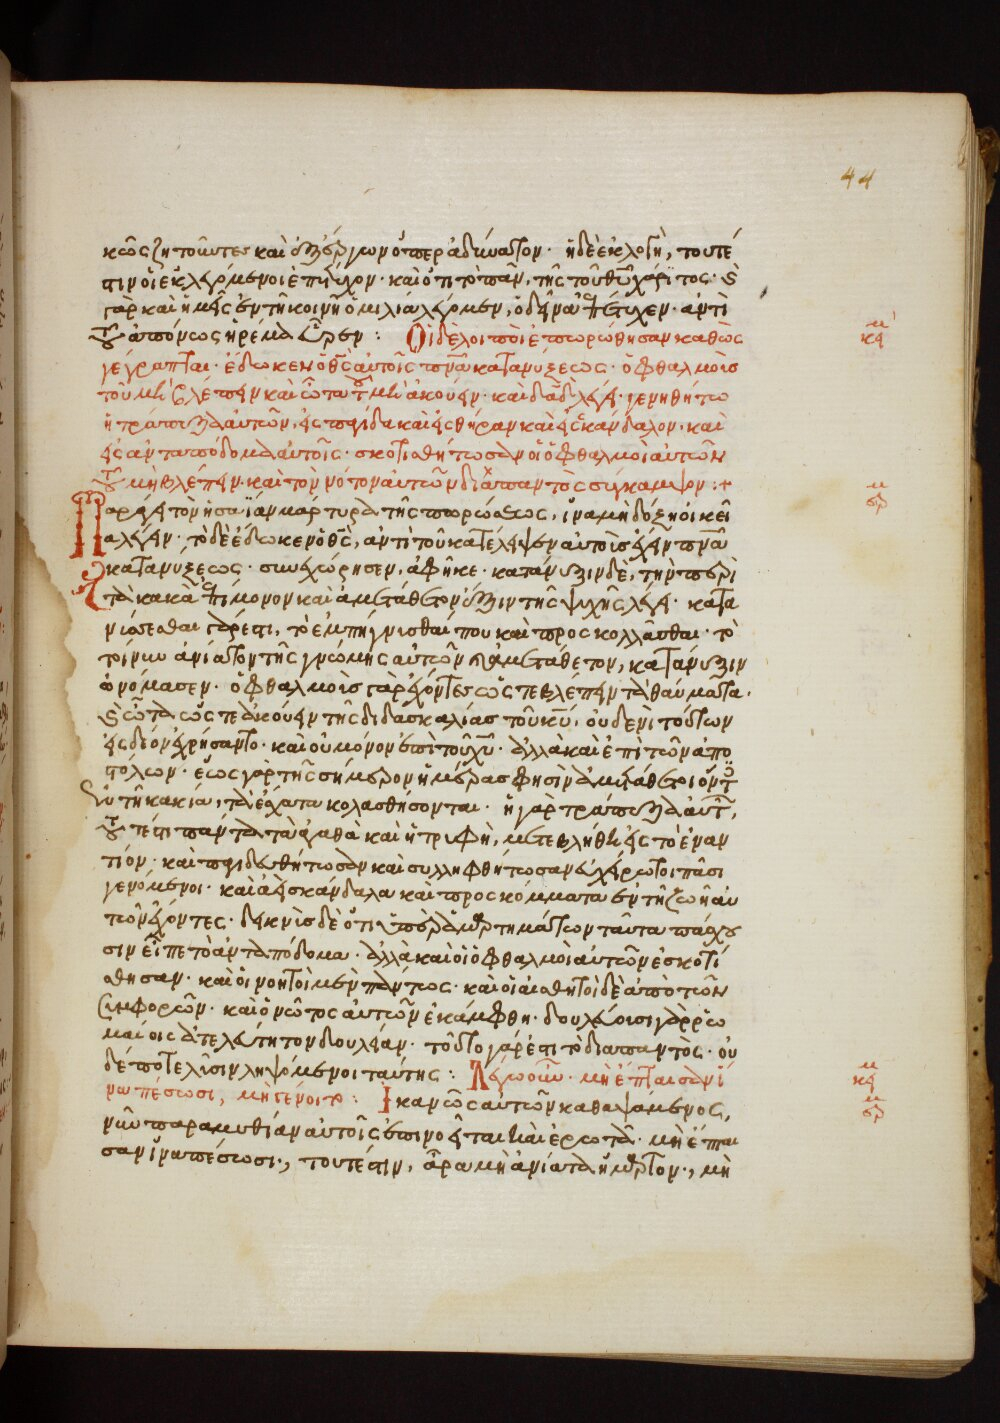 44
κῶς ζητοῦντες καὶ ἐξ ἔργων ὅπερ ἀδύνατον· ἡ δὲ ἐκλογὴ, τουτέ
στιν οἱ ἐκλεγόμενοι ἐπέτυχον· καὶ ὅτι τὸ πᾶν, τῆς τοῦ θῦ χάριτος· ὡς
γὰρ καὶ ἡμεῖς ἐν τῇ κοινῇ ὁμιλία λέγομεν, ὁ δεῖνα ἐπέτυχεν· ἀντὶ
τοῦ ἀπόνως
Οἱ δὲ λοιποὶ ἐπωρώθησαν καθὼς
γέγραπται· ἔδωκεν ὁ θς αὐτοῖς πνα κατανύξεως· ὀφθαλμοὺς
τοῦ μὴ βλέπειν καὶ ὦτα τοῦ μὴ ἀκούειν· καὶ δαδ λέγει· γενηθήτω
ἡ τράπεζα αὐτῶν, εἰς παγίδα καὶ εἰς θήραν καὶ εἰς σκάνδαλον, καὶ
εἰς ἀνταπόδομα αὐτοῖς· σκοτισθήτωσαν οἱ ὀφθαλμοὶ αὐτῶν
τοῦ μὴ βλέπειν· καὶ τὸν νότον αὐτῶν διαπαντὸς σύγκαμψον :+
Παράγει τὸν ησαΐαν μάρτυρα τῆς πωρώσεως, ἵνα μὴ δόξῃ οἰκεῖ
α λέγειν· τὸ δὲ ἔδωκεν ὁ θς, ἀντὶ τοῦ κατέλειψεν αὐτοῖς ἔχειν πνα
κατανύξεως· συνεχώρησεν, ἀφῆκε· κατάνυξιν δὲ, τὴν περὶ
τὰ κακὰ ἐπίμονον καὶ ἀμετάθετον ἕξιν τῆς ψυχῆς λέγει· κατα
νύσσεσθαι γάρ ἐστι, τὸ ἐμπήγνυσθαί που καὶ προσκολλᾶσθαι· τὸ
τοίνυν ἀνίατον τῆς γνώμης αὐτῶν καὶ ἀμετάθετον, κατάνυξιν
ὠνόμασεν· ὀφθαλμοὺς γὰρ ἔχοντες ὥστε βλέπειν τὰ θαύματα·
καὶ ὦτα ὥστε ἀκούειν τῆς διδασκαλίας τοῦ κυ, οὐδενὶ τούτων
εἰς δέον ἐχρήσαντο· καὶ οὐ μόνον ἐπὶ τοῦ χυ· ἀλλὰ καὶ ἐπὶ τῶν ἀπο
στόλων· ἕως γὰρ τῆς σήμερον ἡμέρας φησὶν ἀμετάθετοι ὄντ
ἐν τῇ κακία, τὰ ἔσχατα κολασθήσονται· ἡ γὰρ τράπεζα αὐτ,
τοῦτ ἔστι πάντα τὰ ἀγαθὰ καὶ ἡ τρυφὴ, μετεβλήθη εἰς τὸ ἐναν
τίον· καὶ παγιδευθήτωσαν καὶ συλληφθήτωσαν εὐχείρωτοι πᾶσι
γενόμενοι· καὶ ἀεὶ σκάνδαλα καὶ προσκόμματα ἐν τῇ ζωῇ αὐ
τῶν ἔχοντες· δεικνὺς δὲ ὅτι ὑπὲρ ἁμαρτημάτων ταῦτα πάσχου
σιν εἶπε τὸ ἀνταπόδομα· ἀλλὰ καὶ οἱ ὀφθαλμοὶ αὐτῶν ἐσκοτί
σθησαν· καὶ οἱ νοητοὶ μὲν πάντως· καὶ οἱ αἰσθητοὶ δὲ ἀπὸ τῶν
συμφορῶν· καὶ ὁ νῶτος αὐτῶν ἐκάμφθη· δουλεύουσι γὰρ ῥω
μαίοις ἀτελεύτητον δουλείαν· τοῦτο γάρ ἐστι τὸ διαπαντὸς· οὐ
δέποτε λύσιν ληψόμενοι ταύτης : Λέγω οὖν· μὴ ἔπταισαν ἵ
να πέσωσι, μὴ γένοιτο : Ἱκανῶς αὐτῶν καθαψάμενος,
νῦν παραμυθίαν αὐτοῖς ἐπινοεῖται καὶ ἐρωτᾶ· μὴ ἔπται
σαν ἵνα πέσωσι·, τουτέστιν, ἆρα μὴ ἀνίατα ἥμαρτον·, μὴ